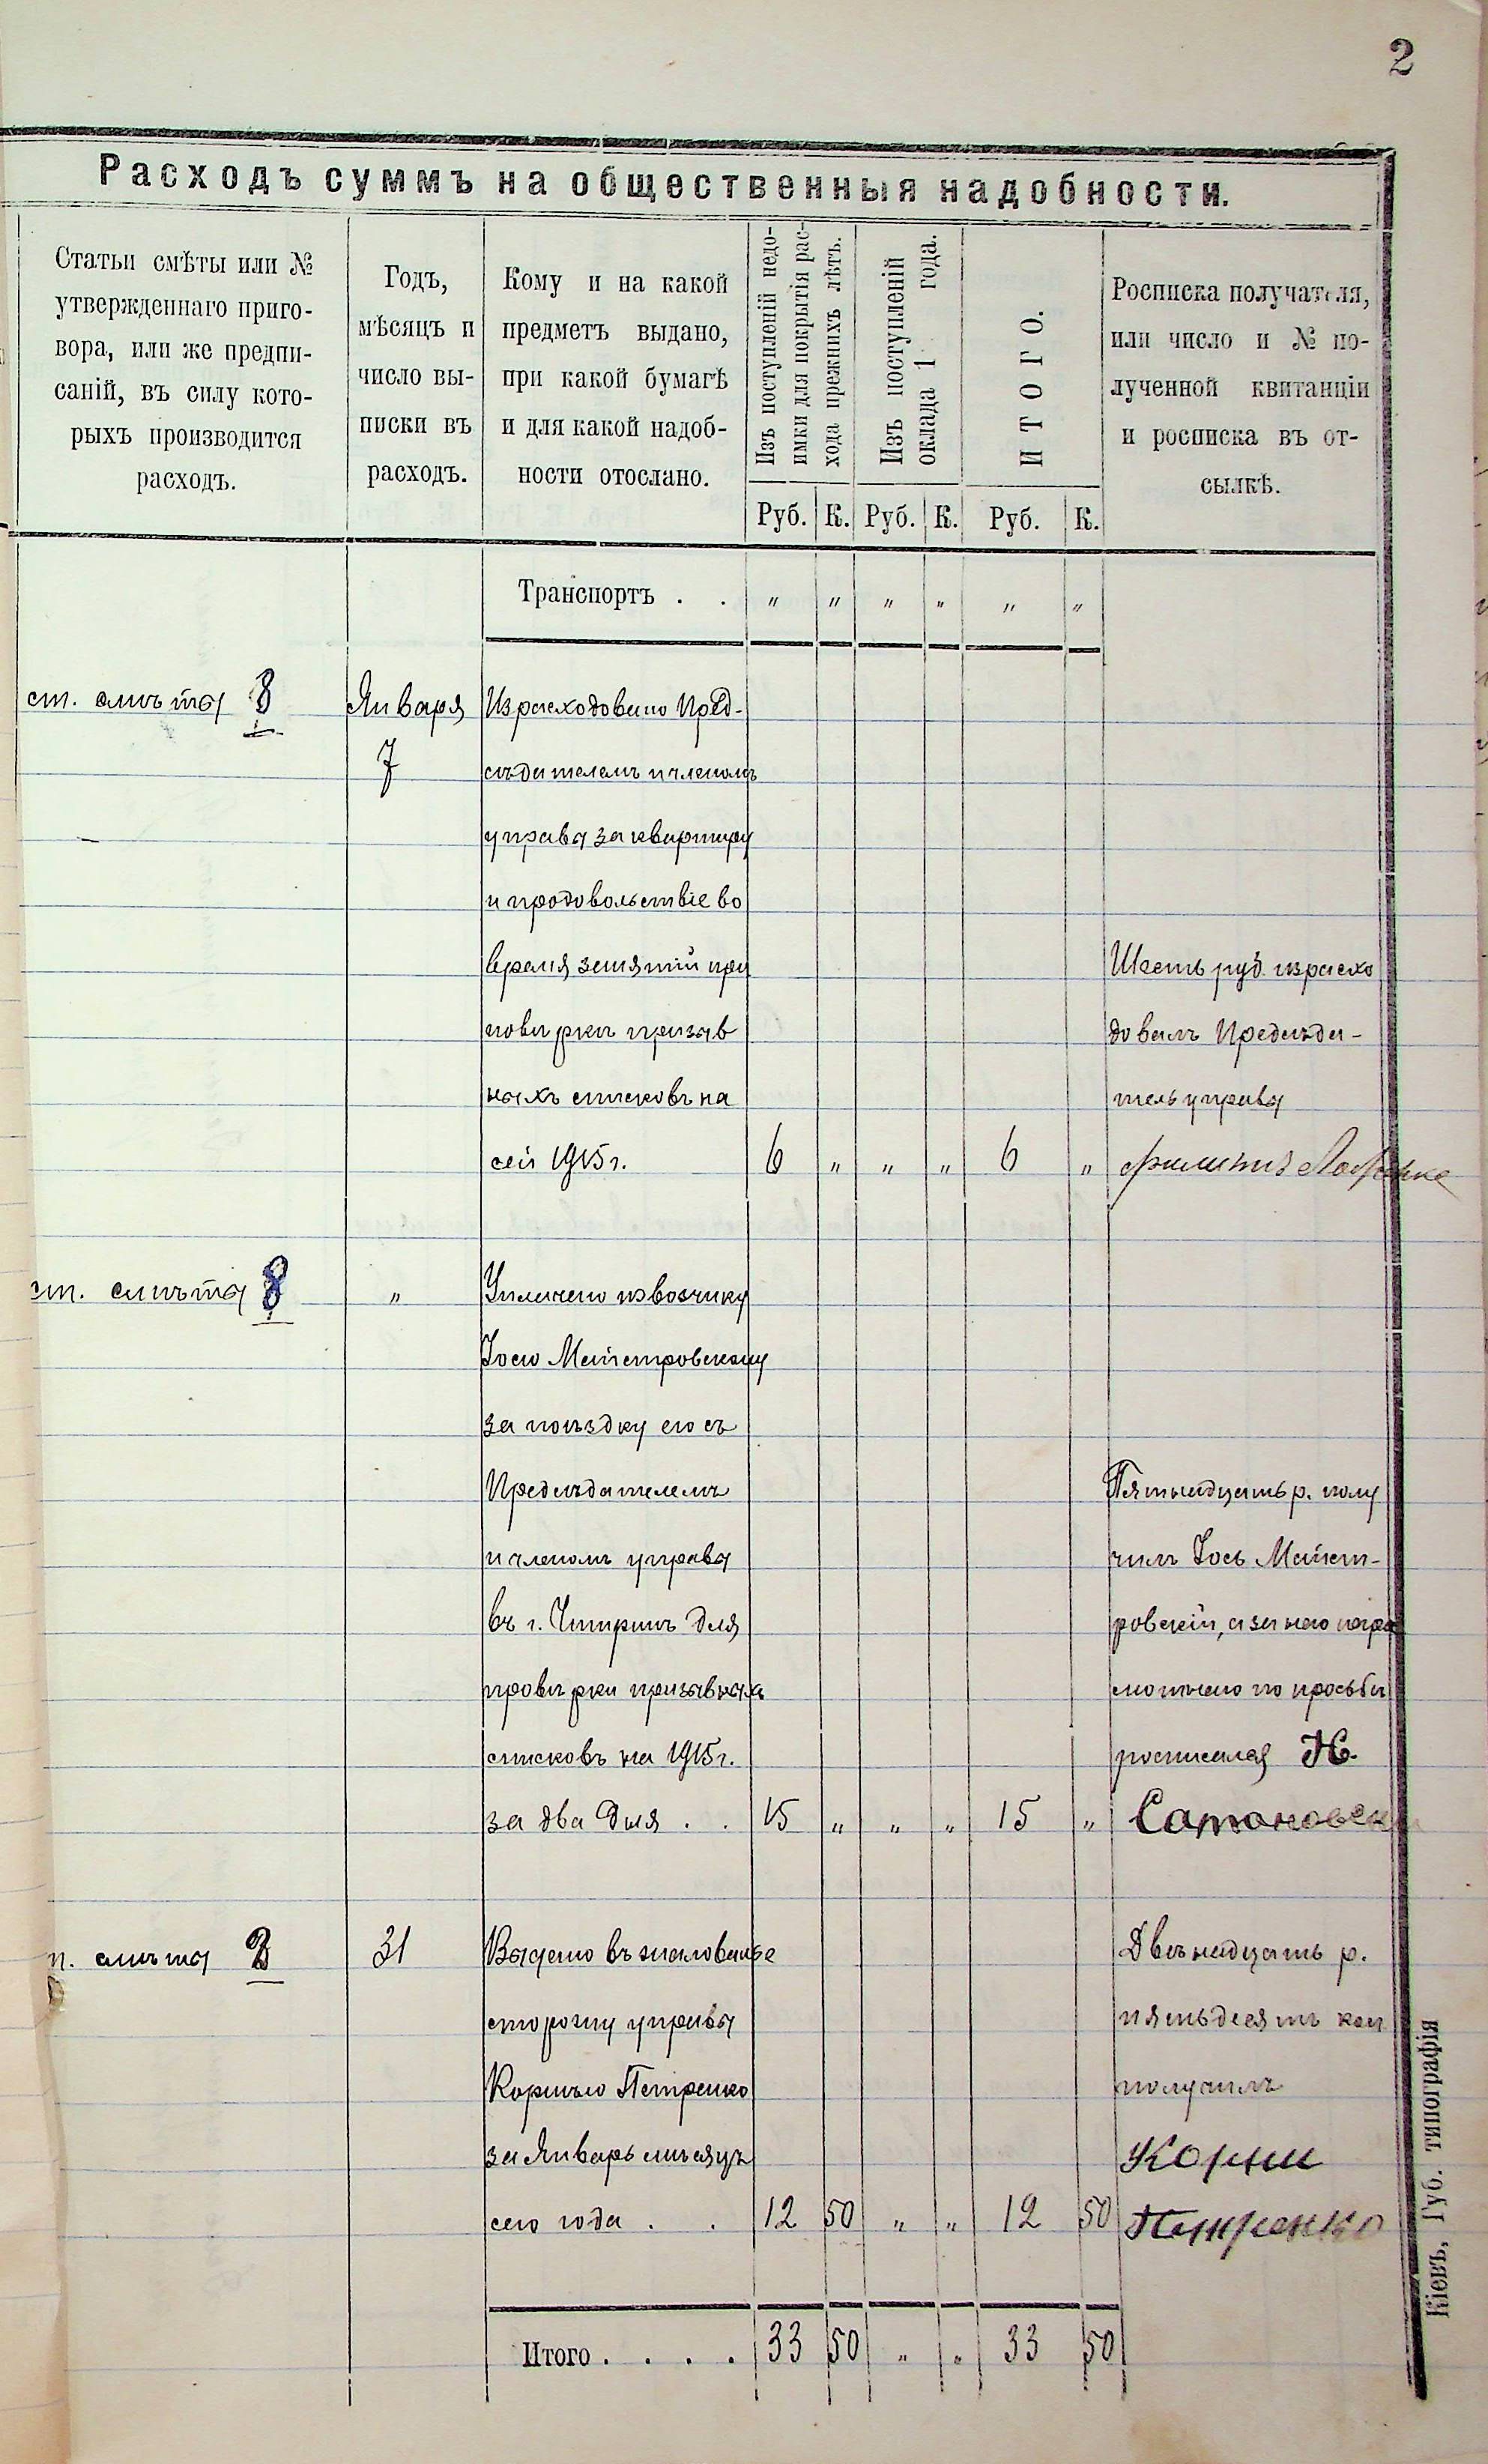 2
Расходъ суммъ на общественныя надобности.
Статьи смѣты или №
утвержденнаго приго-
вора, или же предпи-
саній, въ силу кото-
рыхъ производится
расходъ.
Годъ,
мѣсяцъ и
число вы-
писки въ
расходъ.
Кому и на какой
предметъ выдано,
при какой бумагѣ
и для какой надоб-
ности отослано.
Изъ поступленій недо-
имки для покрытія рас-
хода прежнихъ лѣтъ.
Изъ поступленій
оклада 1 года.
ИТОГО.
Росписка получателя,
или число и № по-
лученной квитанціи
и росписка въ от-
сылкѣ.
Руб. К. Руб. К. Руб. К.
Транспортъ . . " " " " " "
ст. смѣты 8 Января Израсходовано Пред-
7 сѣдателемъ и членомъ
управы за квартиру
и продовольствіе во
время занятій при
повѣркѣ призыв
ныхъ списковъ на
сей 1915 г. 6 " " " 6 "
Шесть руб. израсхо
довалъ Предсѣда-
тель управы
Филиппъ
ст. смѣты 8 " Уплачено извозчику
Іосю Майстровскому
за поѣздку его съ
Предсѣдателемъ
и членомъ управы
въ г. Чигринъ для
провѣрки призывныхъ
списковъ на 1915 г.
за два дня . . 15 " " " 15 "
Пятнадцать р. полу
чилъ Іось Майст-
ровскій, а за него негра
мотнаго по просьбѣ
росписался Н.
Сатановск
т. смѣты 2 31 Выдано въ жалованье
сторожу управы
Корнѣю Петренко
за Январь мѣсяцъ
сего года . . 12 50 " " 12 50
Двѣнадцать р.
пятьдесятъ коп
получилъ
Корни
Петренко
Итого . . . . 33 50 " " 33 50
Кіевъ, Губ. типографія